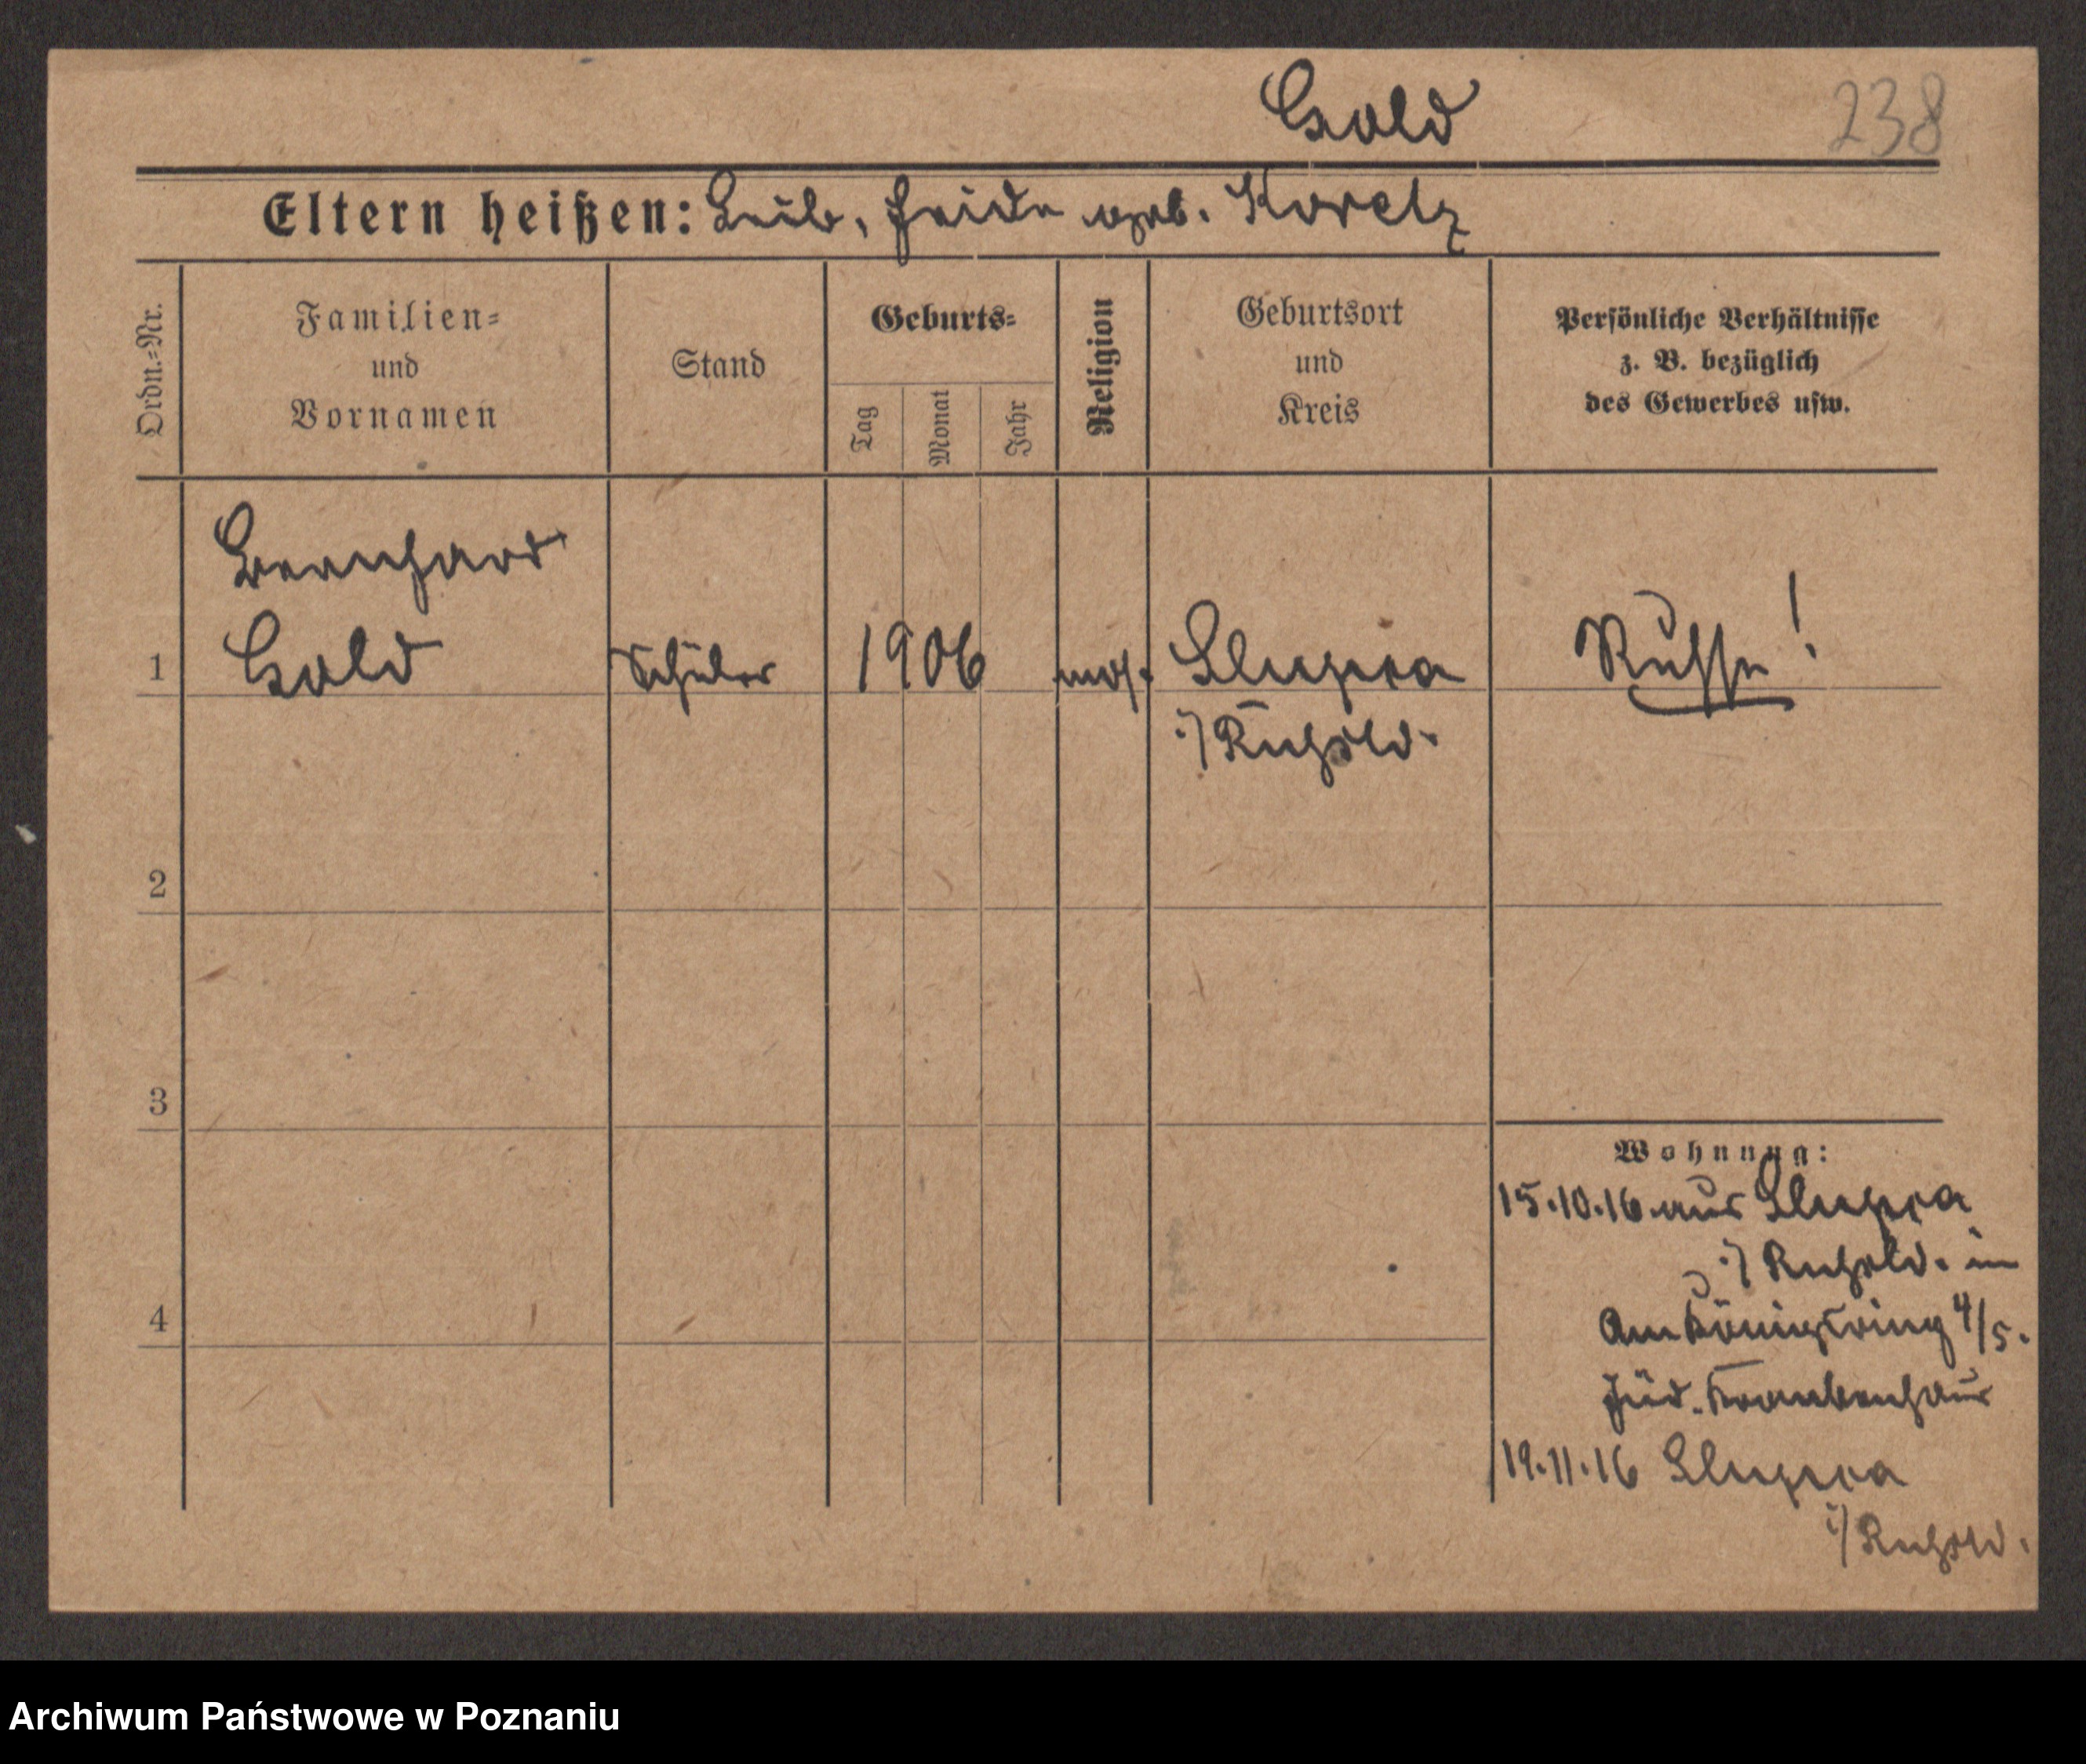 Gold
238
Eltern heißen: Leib, Feide geb. Koretz
Ordn.=Nr.
Familien=
und
Vornamen
Stand
Geburts=
Tag
Monat
Jahr
Religion
Geburtsort
und
Kreis
Persönliche Verhältnisse
z. B. bezüglich
des Gewerbes usw.
Bernhard
1 Gold Schüler 1906 mos. Slupca Russe!
i/ Rußld.
2
3
Wohnung:
15.10.16 aus Slupca
i/ Rußld. in
4
Am Königsring 4/5.
Jüd. Krankenhaus
19.11.16 Slupca
i/ Rußld.
Archiwum Państwowe w Poznaniu